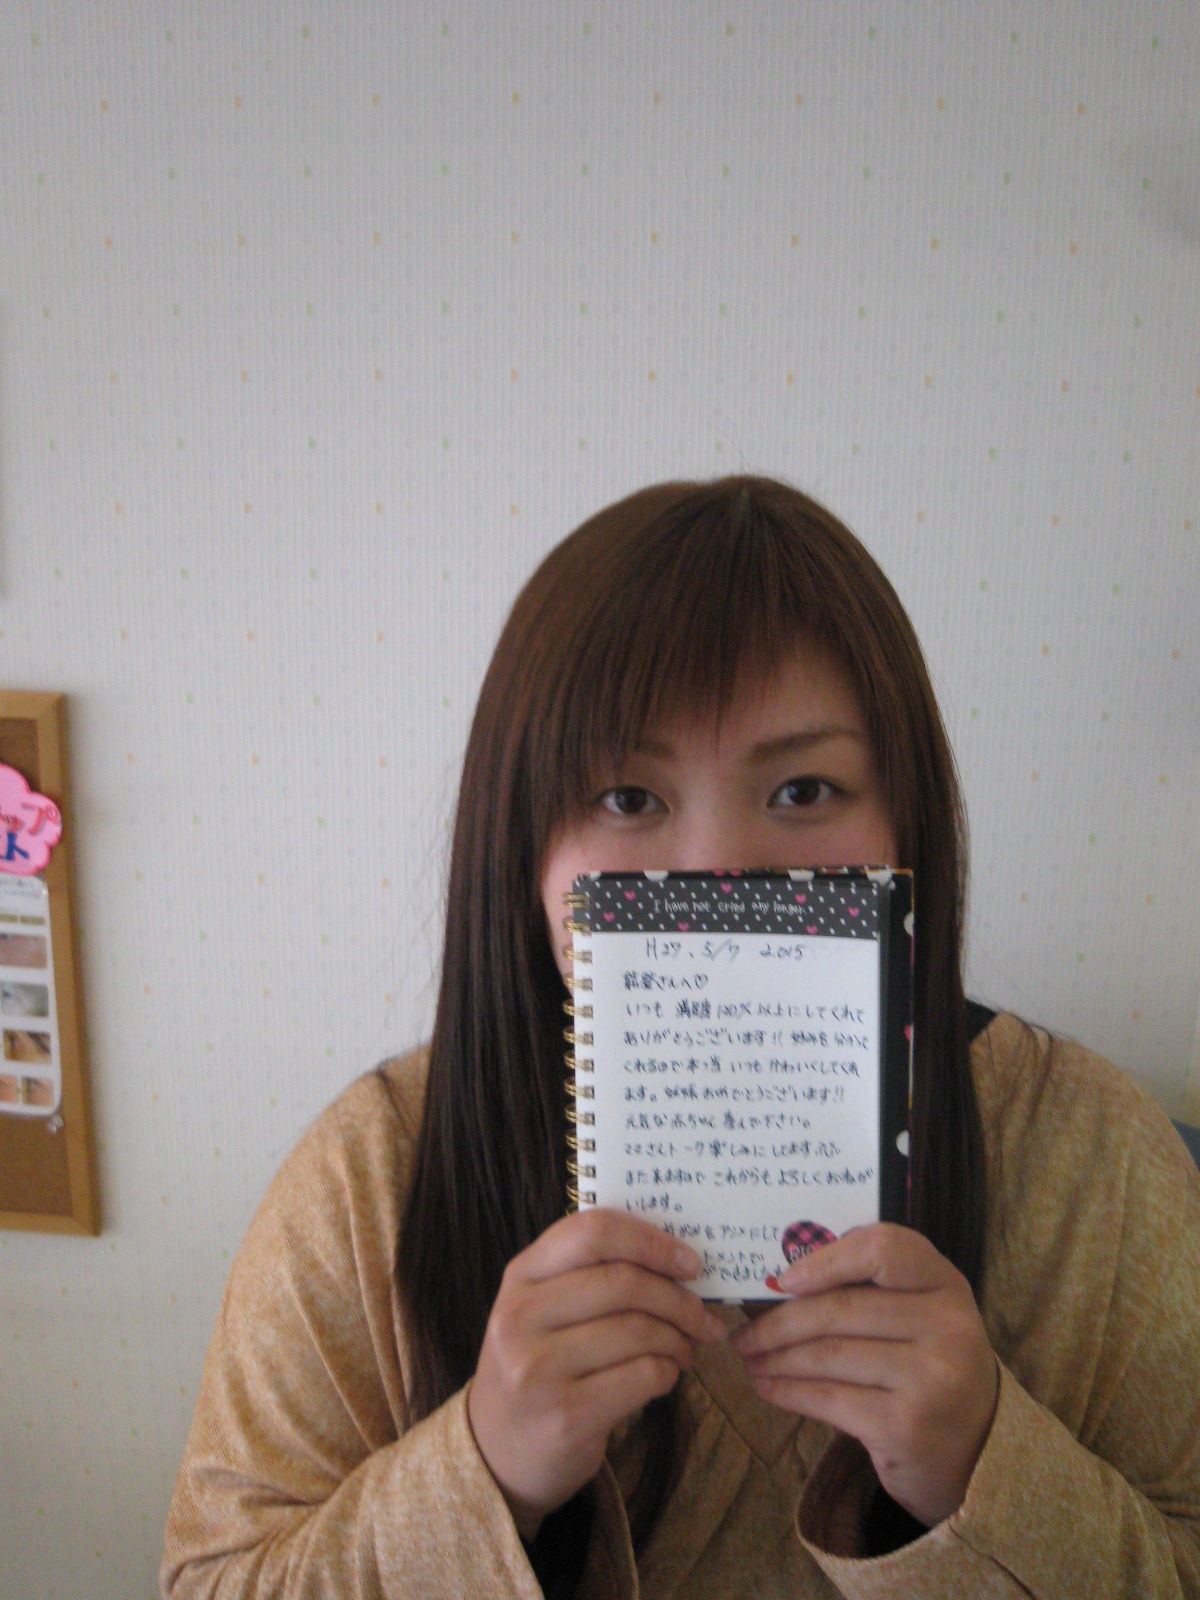 ップ
スト
I have not cried any longer.
H27. 5/7 2015
能登さんへ♡
いつも 満足度 120%以上にしてくれて
ありがとうございます!! 好みを分かって
くれるので本っ当 いつも かわいくしてくれ
ます。妊娠おめでとうございます!!
元気な赤ちゃん産んで下さい。
ママさんトーク楽しみにしてます
また来ますので これからも よろしくおねが
いします。
をアシメにして
トメントで
ができました